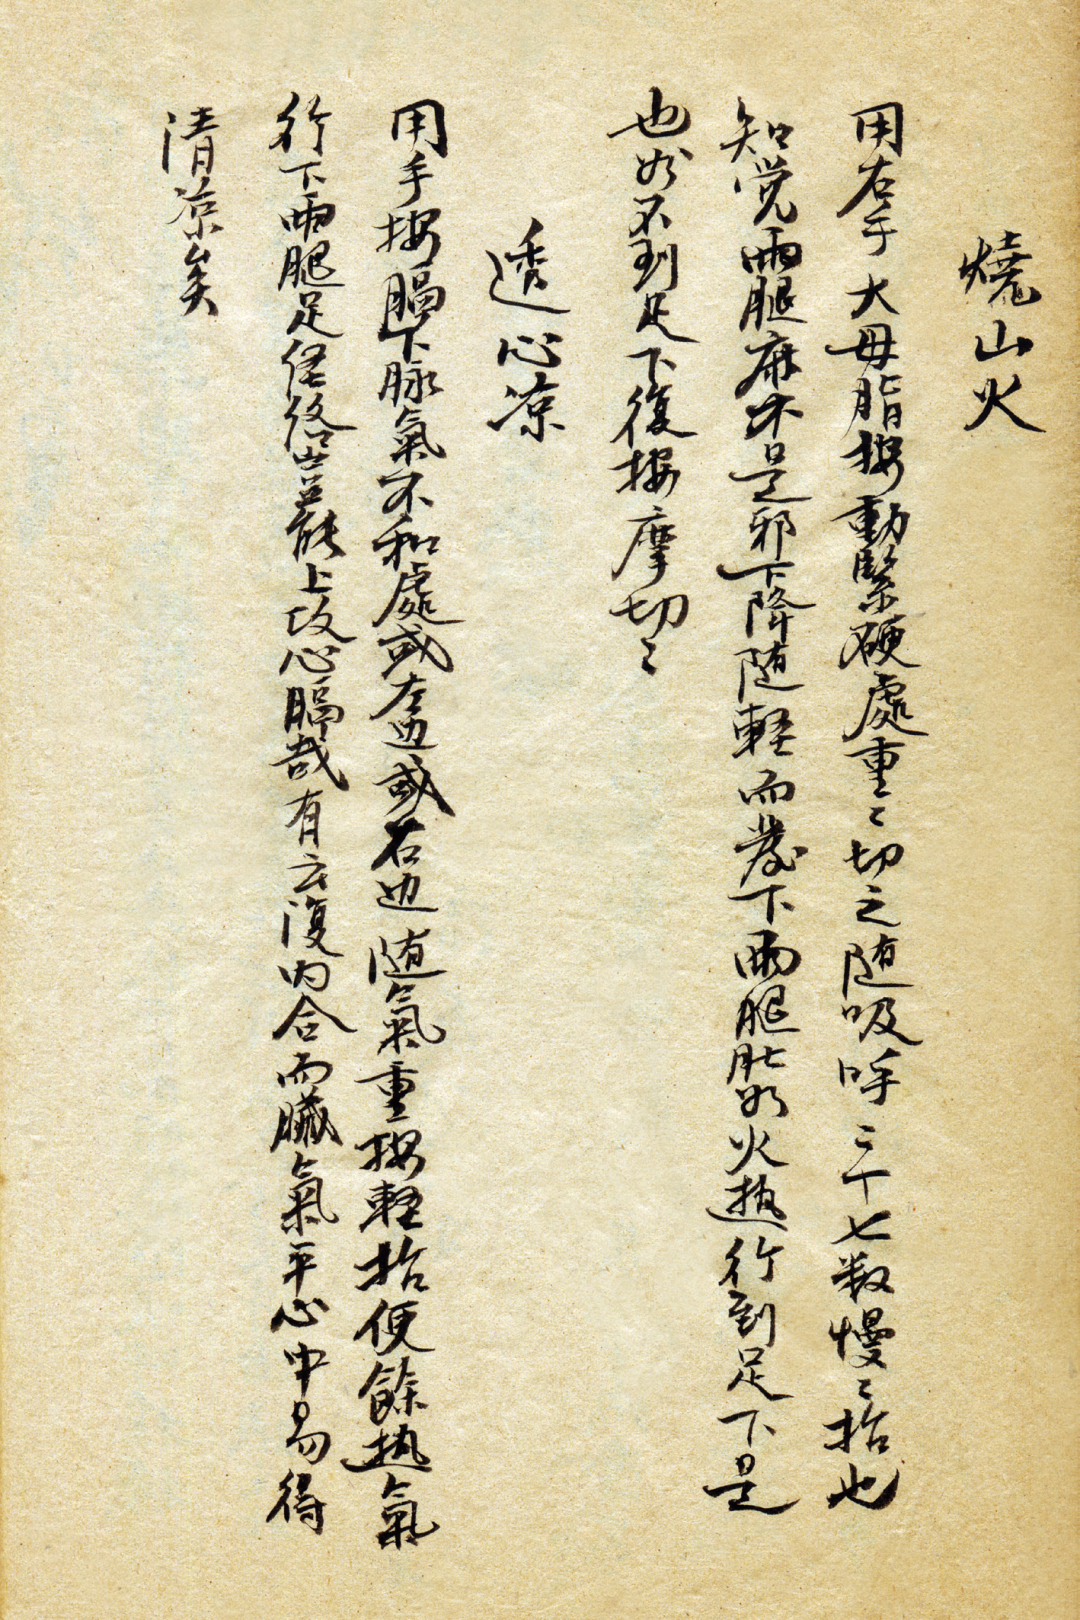 燒山火
用右手大母脂按動緊硬處重〻切之随吸呼三十七数慢〻抬也
知覺兩腿麻木是邪下降随輕而發下兩腿肚如火热行到足下是
也如不到足下復按摩切〻
透心凉
用手按膈下脉氣不和處或左边或右边随氣重按輕抬便餘热氣
行下兩腿足経络豈能上攻心膈哉有云復内合而臟氣平心中易得
清凉矣